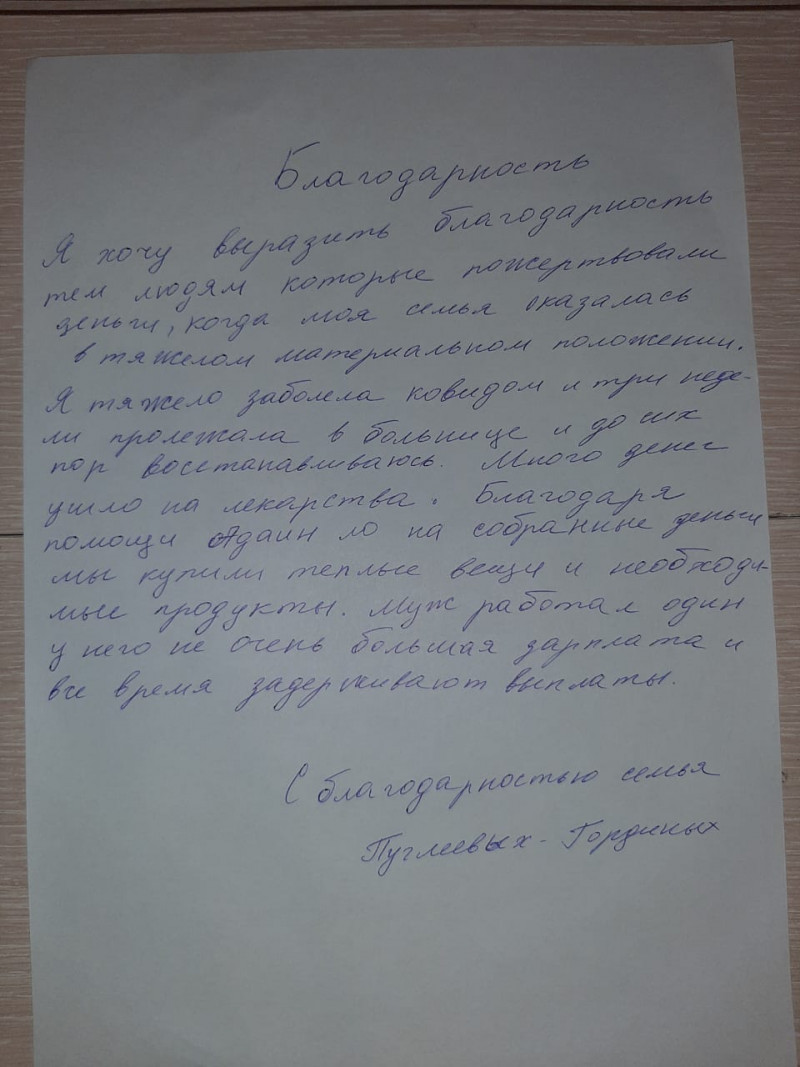 Благодарность
Я хочу выразить благодарность
тем людям которые пожертвовали
деньги, когда моя семья оказалась
в тяжелом материальном положении.
Я тяжело заболела ковидом и три неде-
ли пролежала в больнице и до сих
пор восстанавливаюсь. Много денег
ушло на лекарства. Благодаря
помощи на собранные деньги
мы купили теплые вещи и необходи-
мые продукты. Муж работал один
у него не очень большая зарплата и
все время задерживают выплаты.
С благодарностью семья
Пуглеевых - Гординых